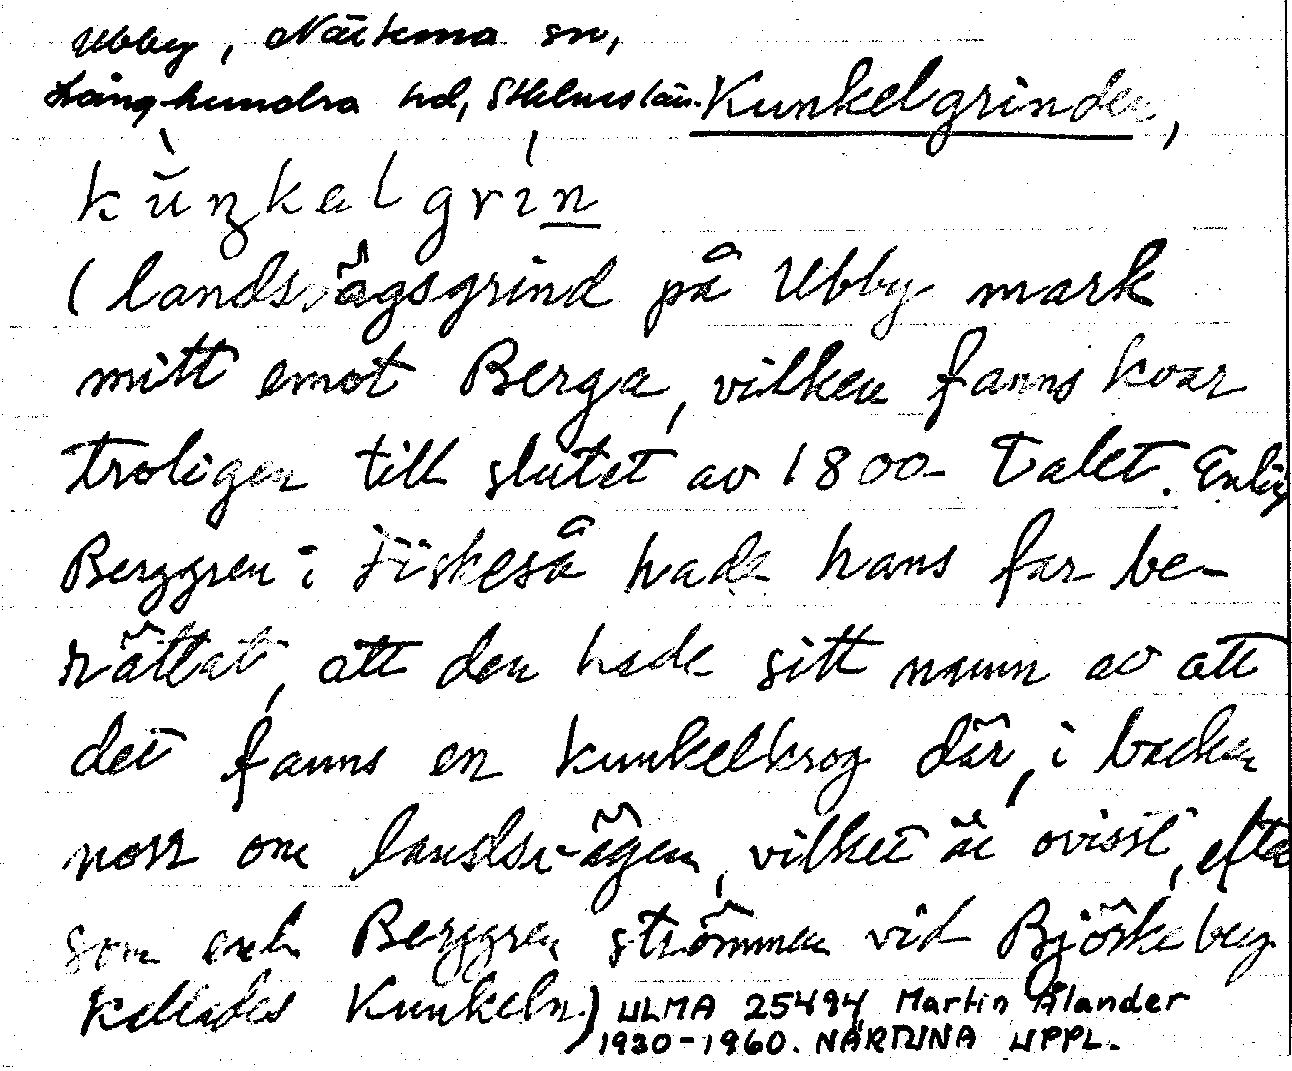 Ubby, Närtuna sn,
Långhundra hd, Sthlms län. Kunkelgrinden,
kùŋkelgrín
(landsvägsgrind på Ubby mark
mitt emot Berga, vilken fanns kvar
troligen till slutet av 1800-talet. Enligt
Berggren i Fiskeså hade hans far be-
rättat, att den hade sitt namn av att
det fanns en kunkelkrog där, i backen
norr om landsvägen, vilket är ovisst, efter
som enl Berggren strömmen vid Björkeby
kallades Kunkeln.) ULMA 25494 Martin Ålander
1930-1960. NÄRTUNA UPPL.